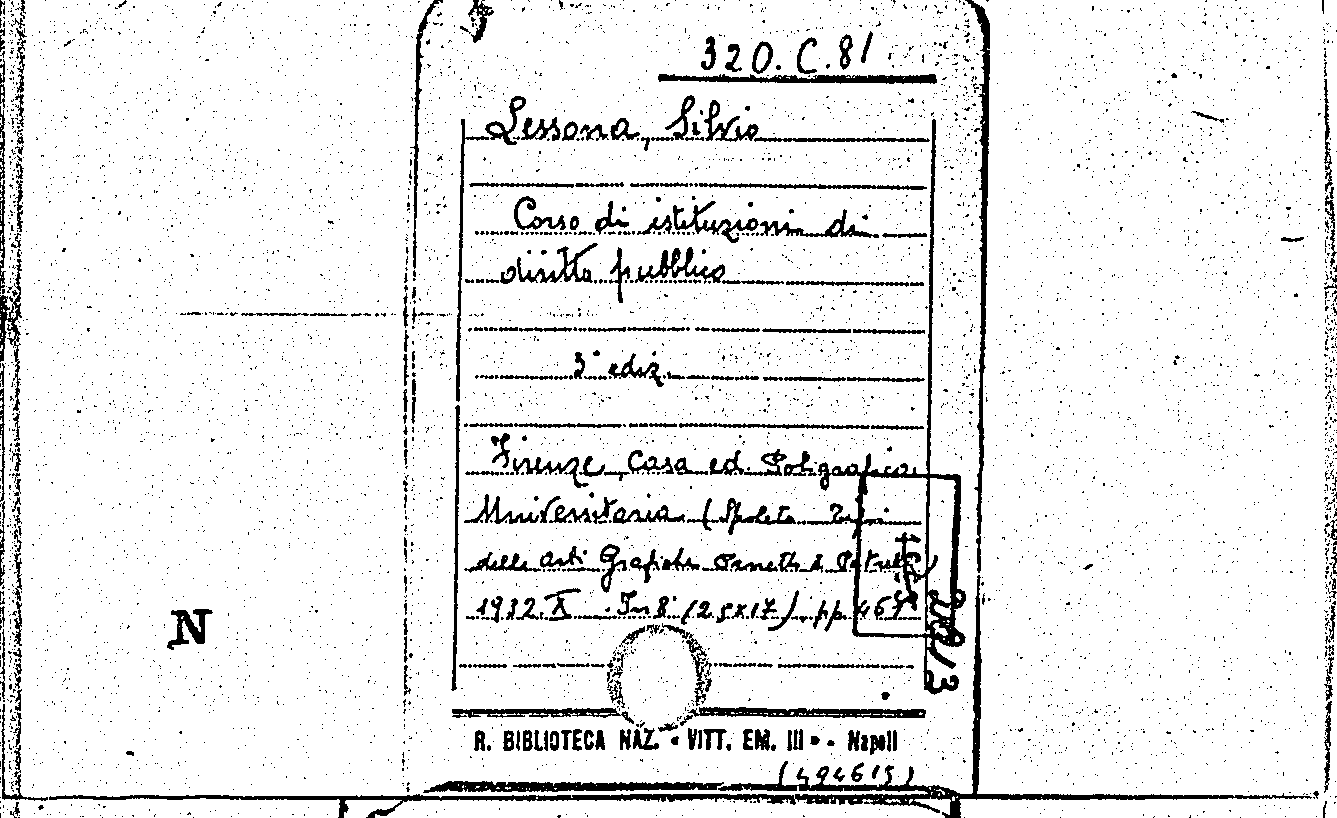 320.C.81
Lessona, Silvio
Corso di istituzioni di
diritto pubblico
3ª ediz.
Firenze, Casa ed. Poligrafica
Universitaria (Spoleto Tipi
delle Arti Grafiche Panetto & Petrelli)
1932.X . In 8° (25x17). pp. 467
N
R. BIBLIOTECA NAZ. « VITT. EM. III » - Napoli
(494615)